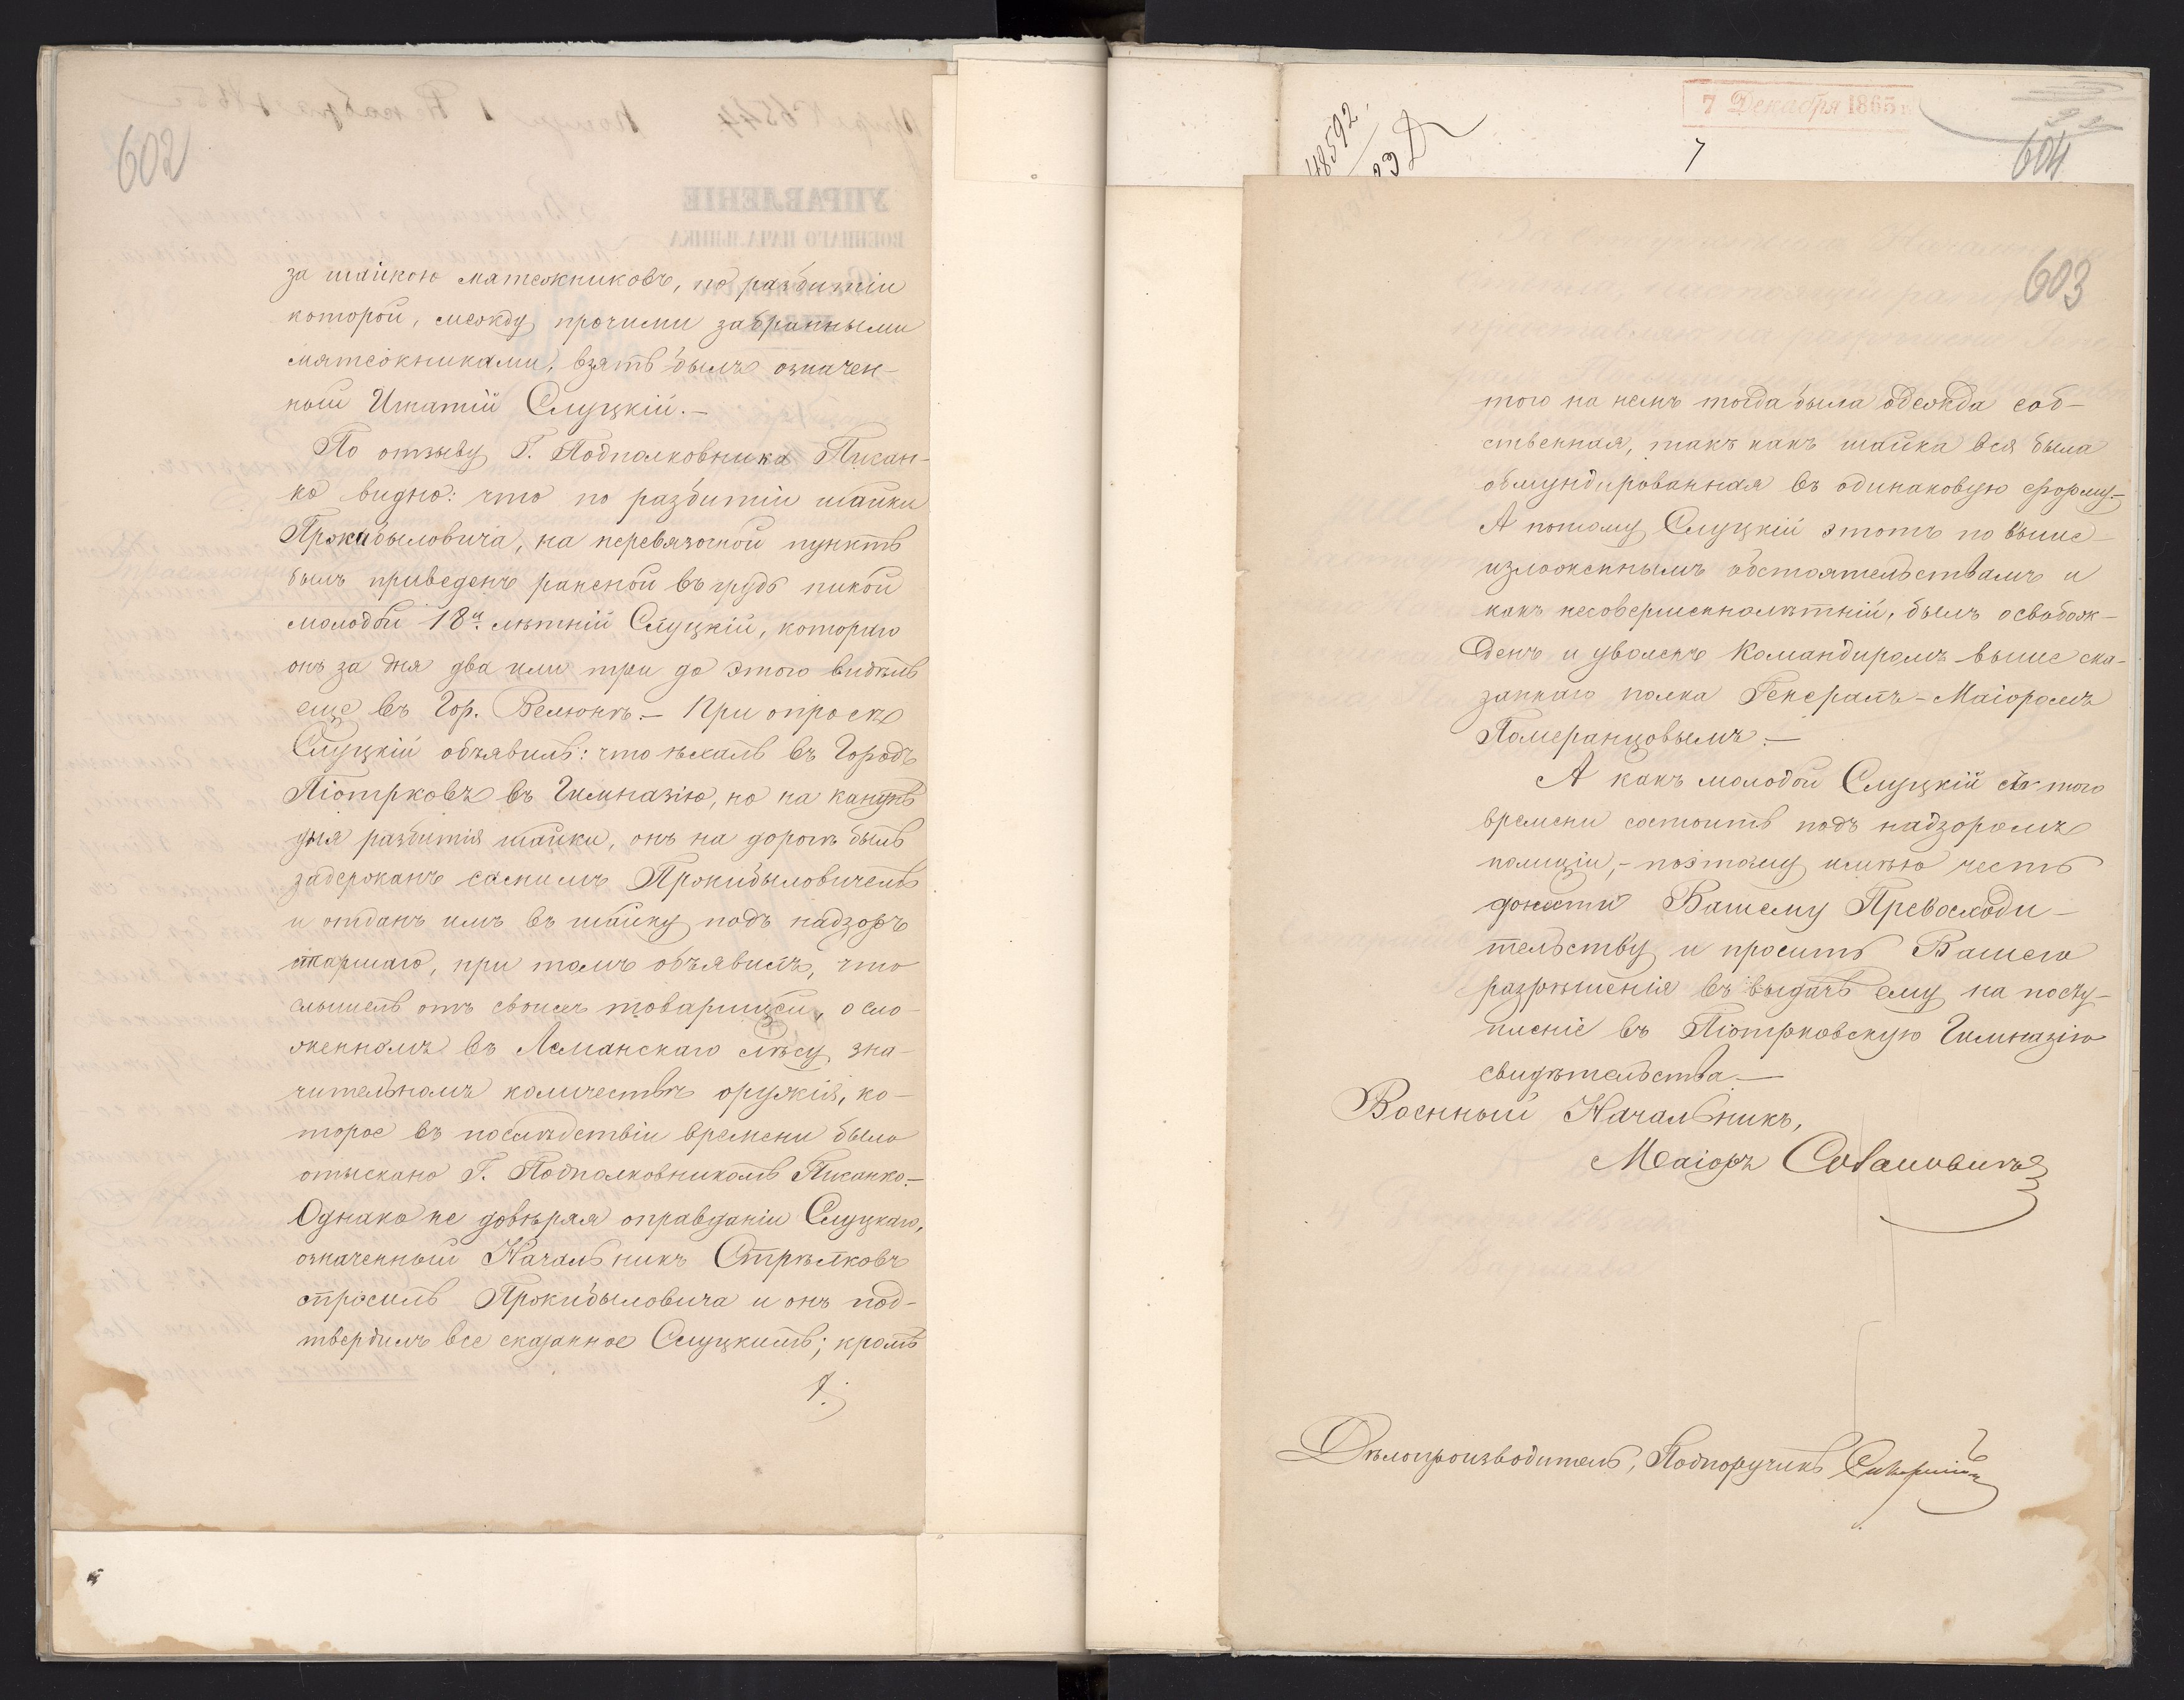 602
за шайкою мятежниковъ, по разбитіи
которой, между прочими забранными
мятежниками, взятъ былъ означен-
ный Игнатій Слуцкій.—
По отзыву Г. Подполковника Писан-
ко видно: что по разбитіи шайки
Прокибыловича, на перевязочной пунктъ
былъ приведенъ раненой въ грудь пикой
молодой 18ти лѣтній Слуцкій, котораго
онъ за дня два или три до этого видѣлъ
еще въ Гор. Велюнѣ.— При опросѣ
Слуцкій объявилъ: что ѣхалъ въ Городъ
Піотрковъ въ Гимназію, но на канунѣ
дня разбитія шайки, онъ на дорогѣ былъ
задержанъ самимъ Прокибыловичемъ
и отданъ имъ въ шайку подъ надзоръ
старшаго, при томъ объявилъ, что
слышелъ отъ своихъ товарищей, о сло-
женномъ въ Леманскаго лѣсу зна-
чительномъ количествѣ оружія, ко-
торое въ послѣдствіи времени было
отыскано Г. Подполковникомъ Писанко.—
Однако не довѣряя оправданіи Слуцкаго,
означенный Начальникъ Стрѣлковъ
спросилъ Прокибыловича и онъ под-
твердилъ все сказанное Слуцкимъ; кромѣ
48592
23
7 Декабря 1865
7
604
603
того на немъ тогда была одежда соб-
ственная, такъ какъ шайка вся была
обмундированная въ одинаковую форму.—
А потому Слуцкій этотъ по выше-
изложеннымъ обстоятельствамъ и
какъ несовершеннолѣтній, былъ освобож-
денъ и уволенъ Командиромъ выше ска-
заннаго полка Генералъ-Маіоромъ
Померанцовымъ.—
А какъ молодой Слуцкій съ того
времени состоитъ подъ надзоромъ
полиціи,- поэтому имѣю честь
донести Вашему Превосходи-
тельству и просить Вашего
разрѣшенія въ выдачѣ ему на посту-
пленіе въ Піотрковскую Гимназію
свидѣтельства.—
Военный Начальникъ,
Маіоръ
Дѣлопроизводитель, Подпоручикъ